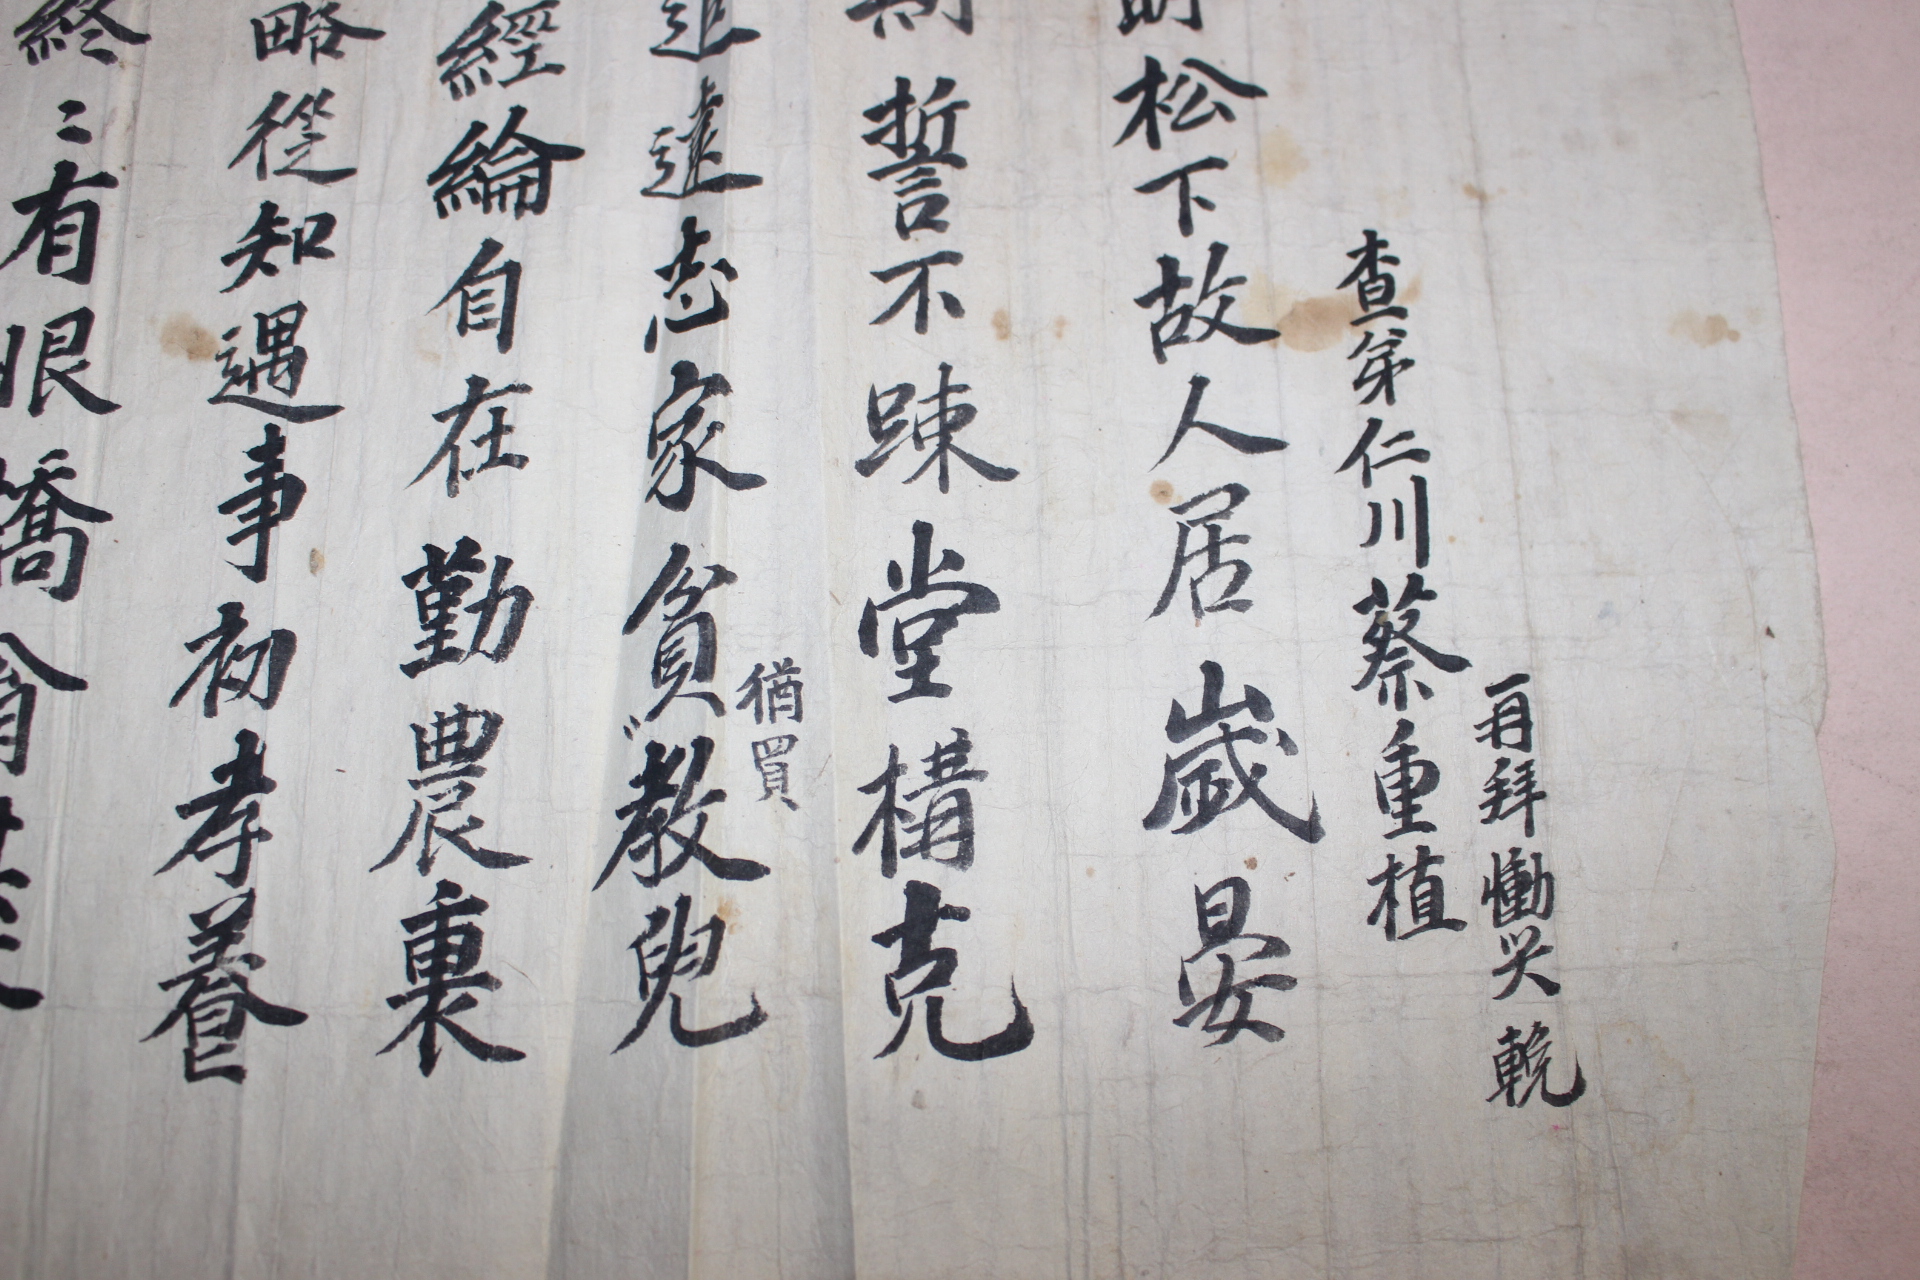 再拜慟哭輓
查弟仁川蔡重植
松下故人居歲晏
誓不踈堂構克
追遠志家貧教兒
猶買
經綸自在勤農裏
略從知遇事初孝養
終〻有眼